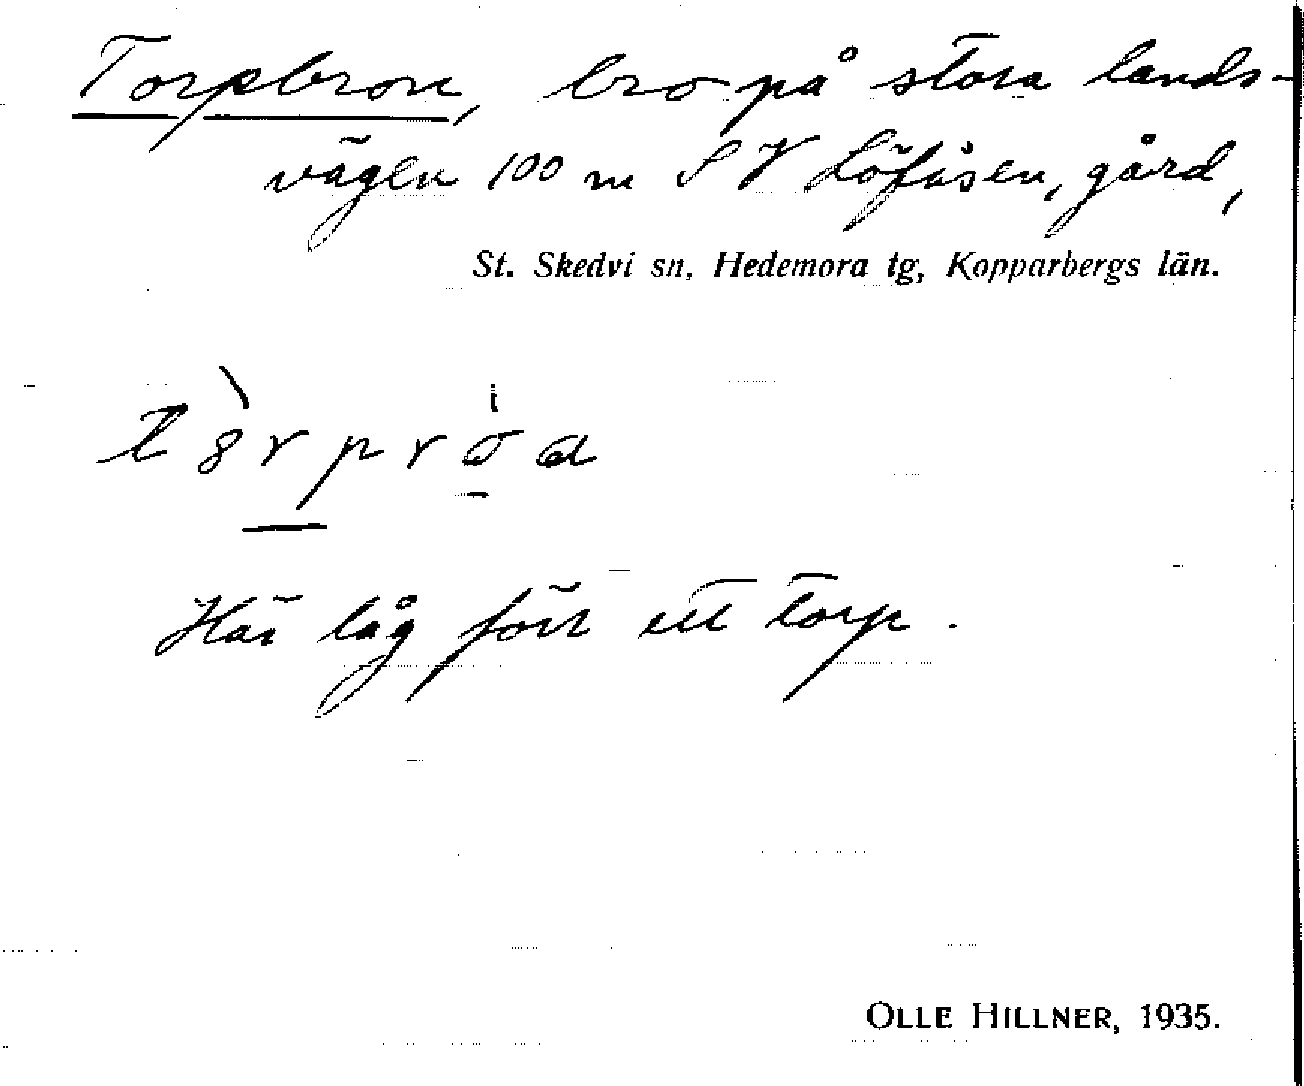 Torpbron, bro på stora lands-
vägen 100 m S V Löfåsen, gård,
St. Skedvi sn, Hedemora tg, Kopparbergs län.
Här låg förr ett torp.
OLLE HILLNER, 1935.